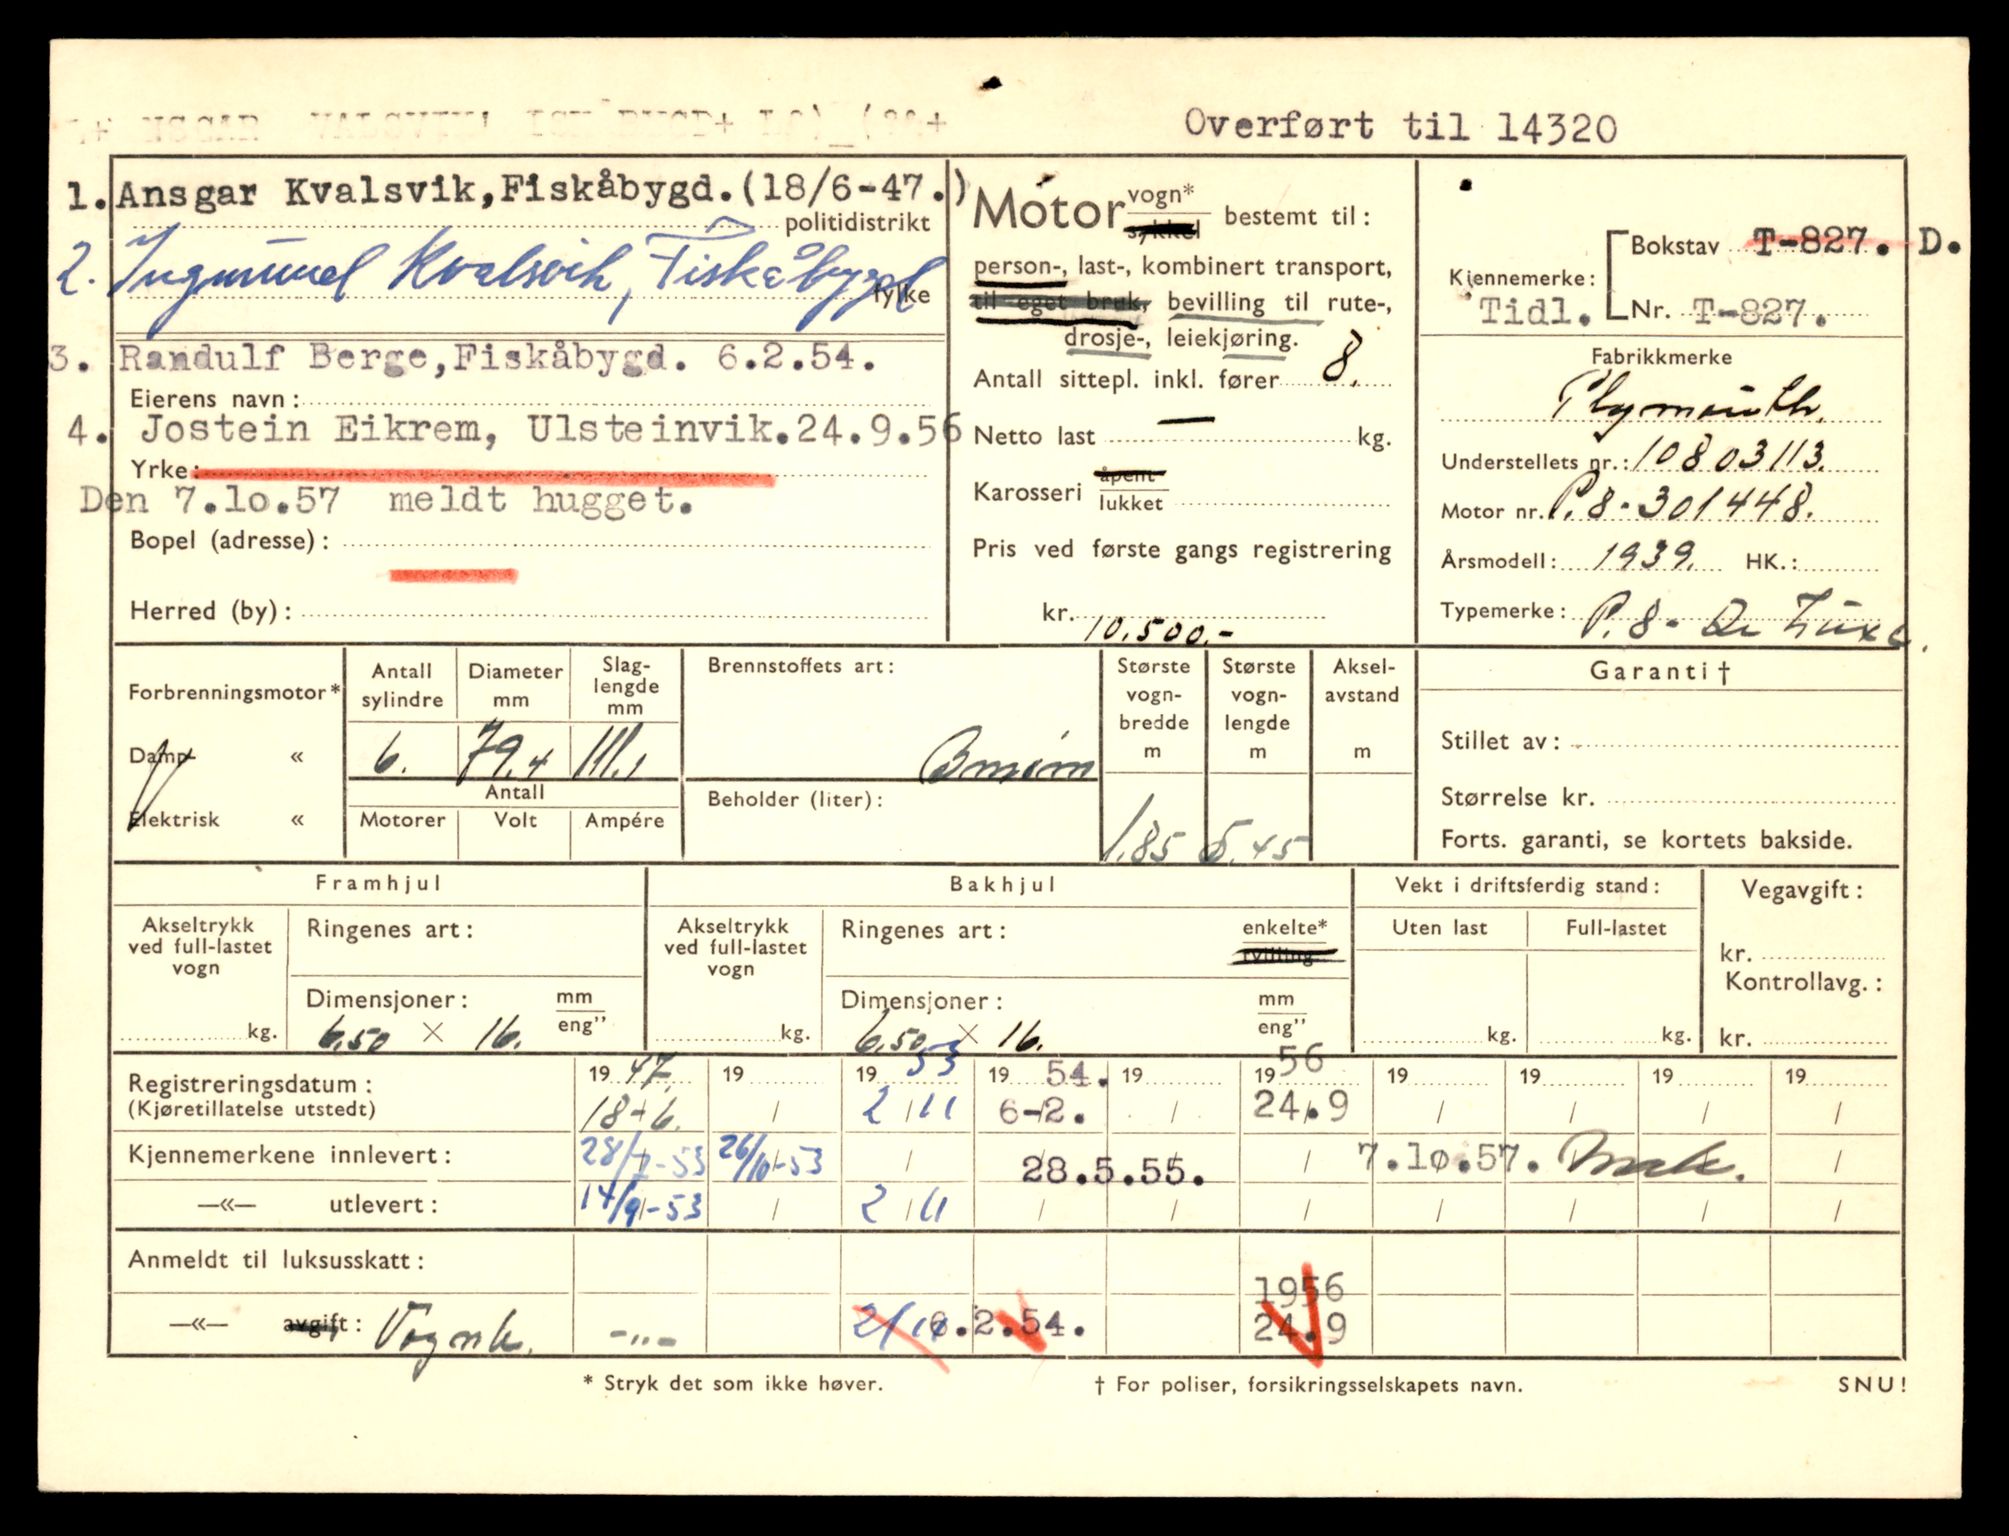 Overført til 14320
1. Ansgar Kvalsvik, Fiskåbygd. (18/6-47.)
politidistrikt
2. Ingmund Kvalsvik, Fiskåbygd
fylke
3. Randulf Berge, Fiskåbygd. 6.2.54.
Eierens navn:
4. Jostein Eikrem, Ulsteinvik. 24.9.56
Yrke:
Den 7.10.57 meldt hugget.
Bopel (adresse):
Herred (by):
Motor vogn* sykkel bestemt til:
person-, last-, kombinert transport,
til eget bruk, bevilling til rute-,
drosje-, leiekjøring.
Antall sittepl. inkl. fører 8.
Netto last — kg.
Karosseri åpent lukket
Pris ved første gangs registrering
kr. 10.500.-
Bokstav T-827. D.
Kjennemerke:
Tidl. Nr. T-827.
Fabrikkmerke
Plymouth.
Understellets nr.: 10803113.
Motor nr. P.8-301448.
Årsmodell: 1939. HK.:
Typemerke: P.8- De Luxe.
Forbrenningsmotor*
Damp «
Elektrisk «
Antall sylindre
6.
Diameter mm
79.4
Slag-lengde mm
111.1
Antall
Motorer Volt Ampére
Brennstoffets art:
Bensin
Beholder (liter):
Største vogn-bredde m
1.85
Største vogn-lengde m
5.45
Aksel-avstand m
Garanti †
Stillet av:
Størrelse kr.
Forts. garanti, se kortets bakside.
Framhjul
Akseltrykk ved full-lastet vogn
kg.
Ringenes art:
Dimensjoner: mm eng”
6.50 × 16.
Bakhjul
Akseltrykk ved full-lastet vogn
kg.
Ringenes art: enkelte* tvilling
Dimensjoner: mm eng”
6.50 × 16.
Vekt i driftsferdig stand:
Uten last Full-lastet
kg. kg.
Vegavgift:
kr.
Kontrollavg.:
kr.
Registreringsdatum: 19 47. 19 19 53 19 54. 19 19 56 19 19 19 19
(Kjøretillatelse utstedt) 18-6. / 2/11 6-2. / 24.9 / / / /
Kjennemerkene innlevert: 26/10-53 / 28.5.55. / 7.10.57. /
—«— utlevert: 14/9-53 / 2/11 / / / / / / /
Anmeldt til luksusskatt:
1956
—«— avgift: Vognk. -"- 6.2.54. 24.9
* Stryk det som ikke høver.
† For poliser, forsikringsselskapets navn.
SNU!